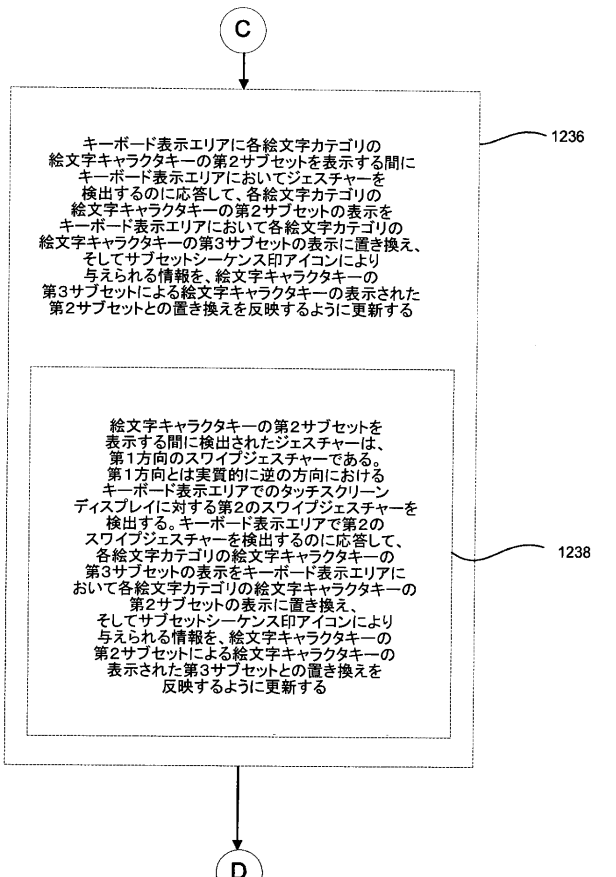 C
キーボード表示エリアに各絵文字カテゴリの
絵文字キャラクタキーの第2サブセットを表示する間に
キーボード表示エリアにおいてジェスチャーを
検出するのに応答して、各絵文字カテゴリの
絵文字キャラクタキーの第2サブセットの表示を
キーボード表示エリアにおいて各絵文字カテゴリの
絵文字キャラクタキーの第3サブセットの表示に置き換え、
そしてサブセットシーケンス印アイコンにより
与えられる情報を、絵文字キャラクタキーの
第3サブセットによる絵文字キャラクタキーの表示された
第2サブセットとの置き換えを反映するように更新する
1236
絵文字キャラクタキーの第2サブセットを
表示する間に検出されたジェスチャーは、
第1方向のスワイプジェスチャーである。
第1方向とは実質的に逆の方向における
キーボード表示エリアでのタッチスクリーン
ディスプレイに対する第2のスワイプジェスチャーを
検出する。キーボード表示エリアで第2の
スワイプジェスチャーを検出するのに応答して、
各絵文字カテゴリの絵文字キャラクタキーの
第3サブセットの表示をキーボード表示エリアに
おいて各絵文字カテゴリの絵文字キャラクタキーの
第2サブセットの表示に置き換え、
そしてサブセットシーケンス印アイコンにより
与えられる情報を、絵文字キャラクタキーの
第2サブセットによる絵文字キャラクタキーの
表示された第3サブセットとの置き換えを
反映するように更新する
1238
D